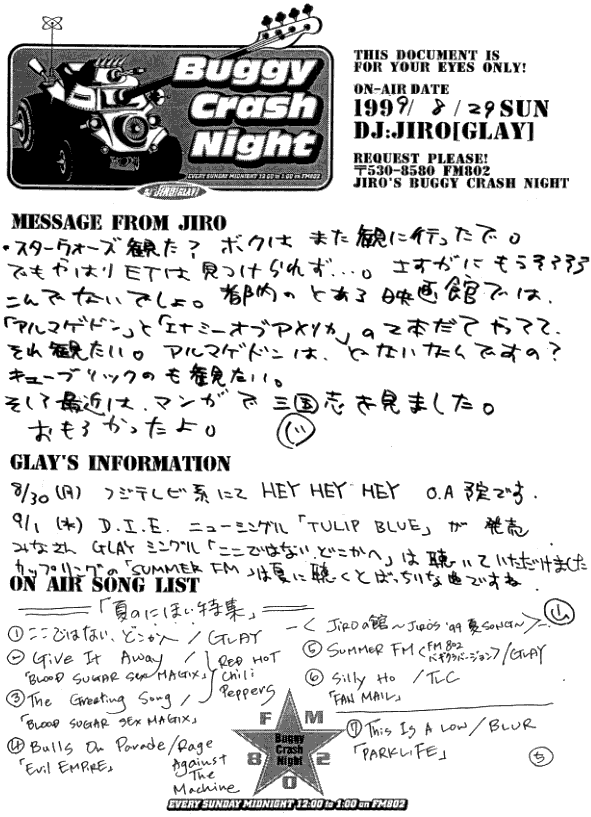 Buggy
Crash
Night
EVERY SUNDAY MIDNIGHT 12:00 to 1:00 on FM802
JIRO[GLAY]
THIS DOCUMENT IS
FOR YOUR EYES ONLY!
ON-AIR DATE
1999/8/29 SUN
DJ:JIRO[GLAY]
REQUEST PLEASE!
〒530-8580 FM802
JIRO'S BUGGY CRASH NIGHT
MESSAGE FROM JIRO
・スターウォーズ観た? ボクはまた観に行ったで。
でもやはりETは見つけられず…。さすがにもうそろそろ
こんでないでしょ。都内のとある映画館では、
「アルマゲドン」と「エナミーオブアメリカ」の2本だてやってて、
それ観たい。アルマゲドンは、どないなんですの?
キューブリックのも観たい。
そして最近は、マンガで三国志を見ました。
おもろかったよ。
GLAY'S INFORMATION
8/30(月) フジテレビ系にて HEY HEY HEY O.A予定です.
9/1(水) D.I.E. ニューシングル「TULIP BLUE」が 発売
みなさん GLAY シングル「ここではないどこかへ」は聴いていただけました
カップリングの「SUMMER FM」は夏に聴くとばっちりな曲ですね
ON AIR SONG LIST
「夏のにほい特集」
① ここではない、どこかへ / GLAY
② Give It Away /
「BLOOD SUGAR SEX MAGIX」
③ The Greeting Song /
「BLOOD SUGAR SEX MAGIX」
RED HOT
Chili
Peppers
④ Bulls On Parade / Rage
Against
The
Machine
「Evil EMPIRE」
<JIROの館~JIRO'S '99 夏SONG~>
⑤ SUMMER FM <FM802
バギクラバージョン> / GLAY
⑥ Silly Ho / TLC
「FAN MAIL」
⑦ This Is A Low / BLUR
「PARKLIFE」
FM
802
Buggy
Crash
Night
EVERY SUNDAY MIDNIGHT 12:00 to 1:00 on FM802